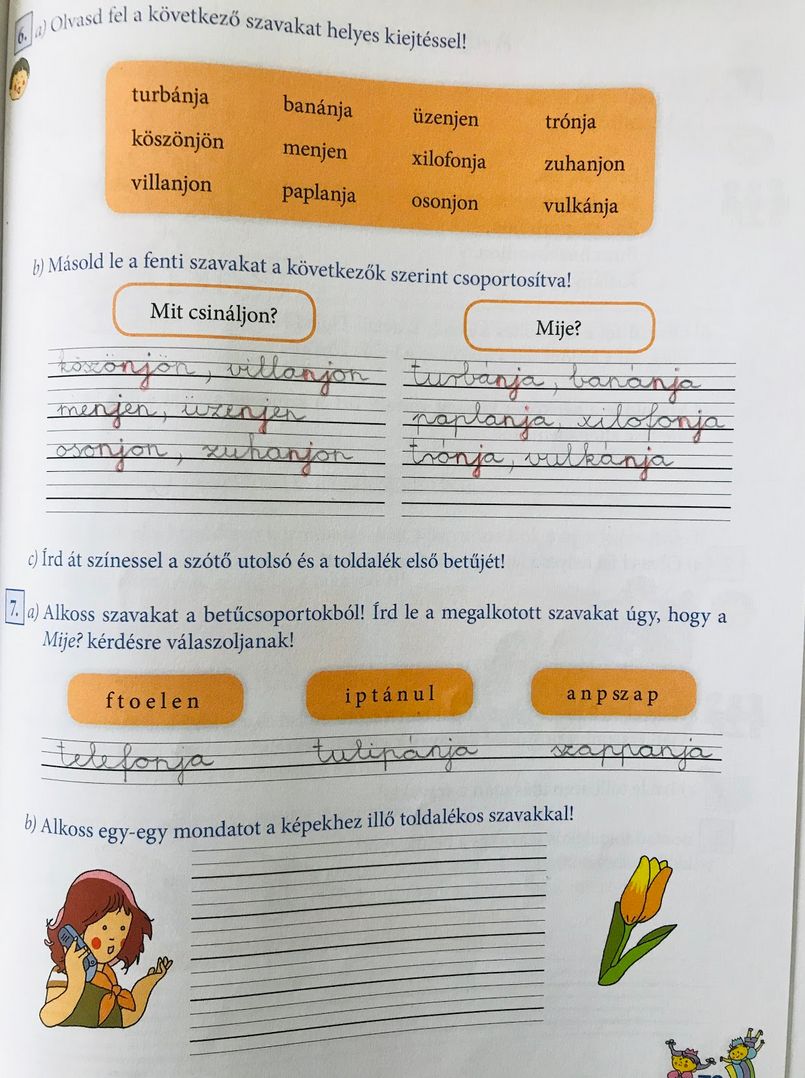 6. a) Olvasd fel a következő szavakat helyes kiejtéssel!
turbánja banánja üzenjen trónja
köszönjön menjen xilofonja zuhanjon
villanjon paplanja osonjon vulkánja
b) Másold le a fenti szavakat a következők szerint csoportosítva!
Mit csináljon? Mije?
köszönjön, villanjon turbánja, banánja
menjen, üzenjen paplanja, xilofonja
osonjon, zuhanjon trónja, vulkánja
c) Írd át színessel a szótő utolsó és a toldalék első betűjét!
7. a) Alkoss szavakat a betűcsoportokból! Írd le a megalkotott szavakat úgy, hogy a
Mije? kérdésre válaszoljanak!
f t o e l e n i p t á n u l a n p sz a p
telefonja tulipánja szappanja
b) Alkoss egy-egy mondatot a képekhez illő toldalékos szavakkal!